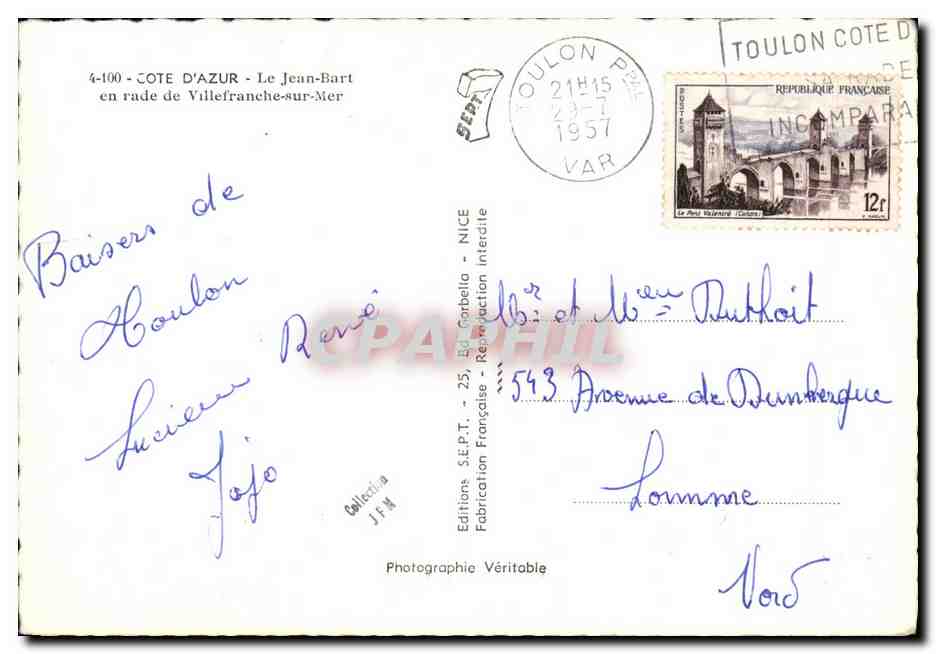 4-100 - COTE D'AZUR - Le Jean-Bart
en rade de Villefranche-sur-Mer
SEPT
TOULON Ppal
21H15
29-7
1957
VAR
TOULON COTE D
SA RADE
INCOMPARA
REPUBLIQUE FRANÇAISE
POSTES
Le Pont Valentré (Cahors)
12f
Baisers de
Toulon
Lucienne René
Jojo
Collection
JFM
Editions S.E.P.T. - 25, Bd Gorbella - NICE
Fabrication Française - Reproduction interdite
CPAPHIL
Mr et Mme Duthoit
543 Avenue de Dunkerque
Lomme
Nord
Photographie Véritable